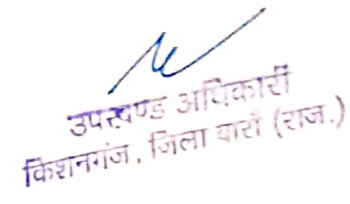 उपखण्ड अधिकारी
किशनगंज, जिला बारां (राज.)